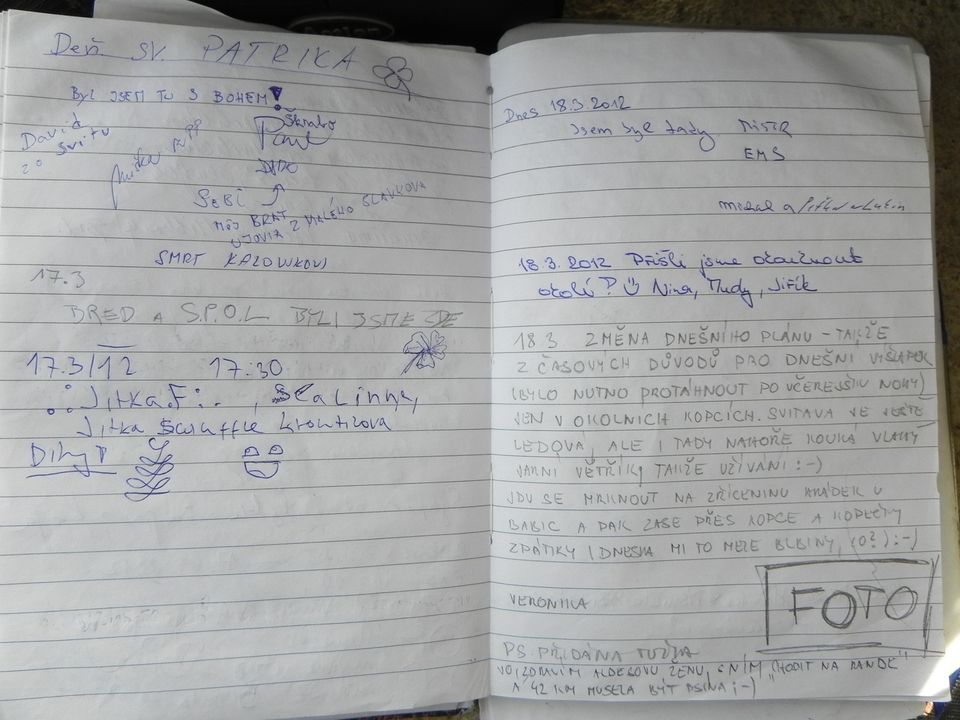 Deň SV. PATRIKA
BYL JSEM TU S BOHEM!
David
ze Svitu
Škrabo
Pavel
DIDO
SEBI
MÔJ BRAT
UJOVIA Z MALÉHO SLAVKOVA
SMRT
17.3
BRED A S.P.O.L BYLI JSME ZDE
17.3/12 17:30
Jitka.F ,
Jitka Scruffle Kroutilova
Díky!
Dnes 18.3.2012
Jsem byl tady MISTR
EMS
Michal a
18.3.2012 Přišli jsme očouhnout
okolí? Nina, Rudy, Jiřík
18.3 ZMĚNA DNEŠNÍHO PLÁNU - TAKŽE
Z ČASOVÝCH DŮVODŮ PRO DNEŠNÍ VÝŠLAP
(BYLO NUTNO PROTÁHNOUT PO VČEREJŠKU NOHY)
JEN V OKOLNÍCH KOPCÍCH. SVITAVA JE JEŠTĚ
LEDOVÁ, ALE I TADY NAHOŘE FOUKÁ VLAHÝ
JARNÍ VĚTŘÍK, TAKŽE UŽÍVÁNÍ :-)
JDU SE MRKNOUT NA ZŘÍCENINU HRÁDEK U
BABIC A PAK ZASE PŘES KOPCE A KOPEČKY
ZPÁTKY (DNESKA MI TO MELE BLBINY, CO?) :-)
VERONIKA
FOTO
PS PŘIDÁNA TUŽKA
ZDRAVÍM ŽENU, S NÍM "CHODIT NA RANDE"
A 42 KM MUSELA BÝT PSINA ;-)